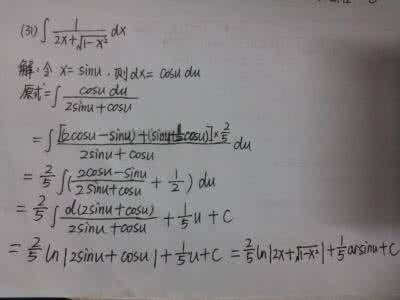 (31) ∫ 1/(2x+√(1-x²)) dx
解:令 x=sinu,则dx=cosu du
原式=∫ cosu du/(2sinu+cosu)
=∫ [(2cosu-sinu)+(sinu+½cosu)]×2/5 / (2sinu+cosu) du
=2/5 ∫((2cosu-sinu)/(2sinu+cosu) + 1/2) du
=2/5 ∫ d(2sinu+cosu)/(2sinu+cosu) + 1/5 u + C
=2/5 ln|2sinu+cosu|+1/5 u+C =2/5 ln|2x+√(1-x²)|+1/5 arsinu+C